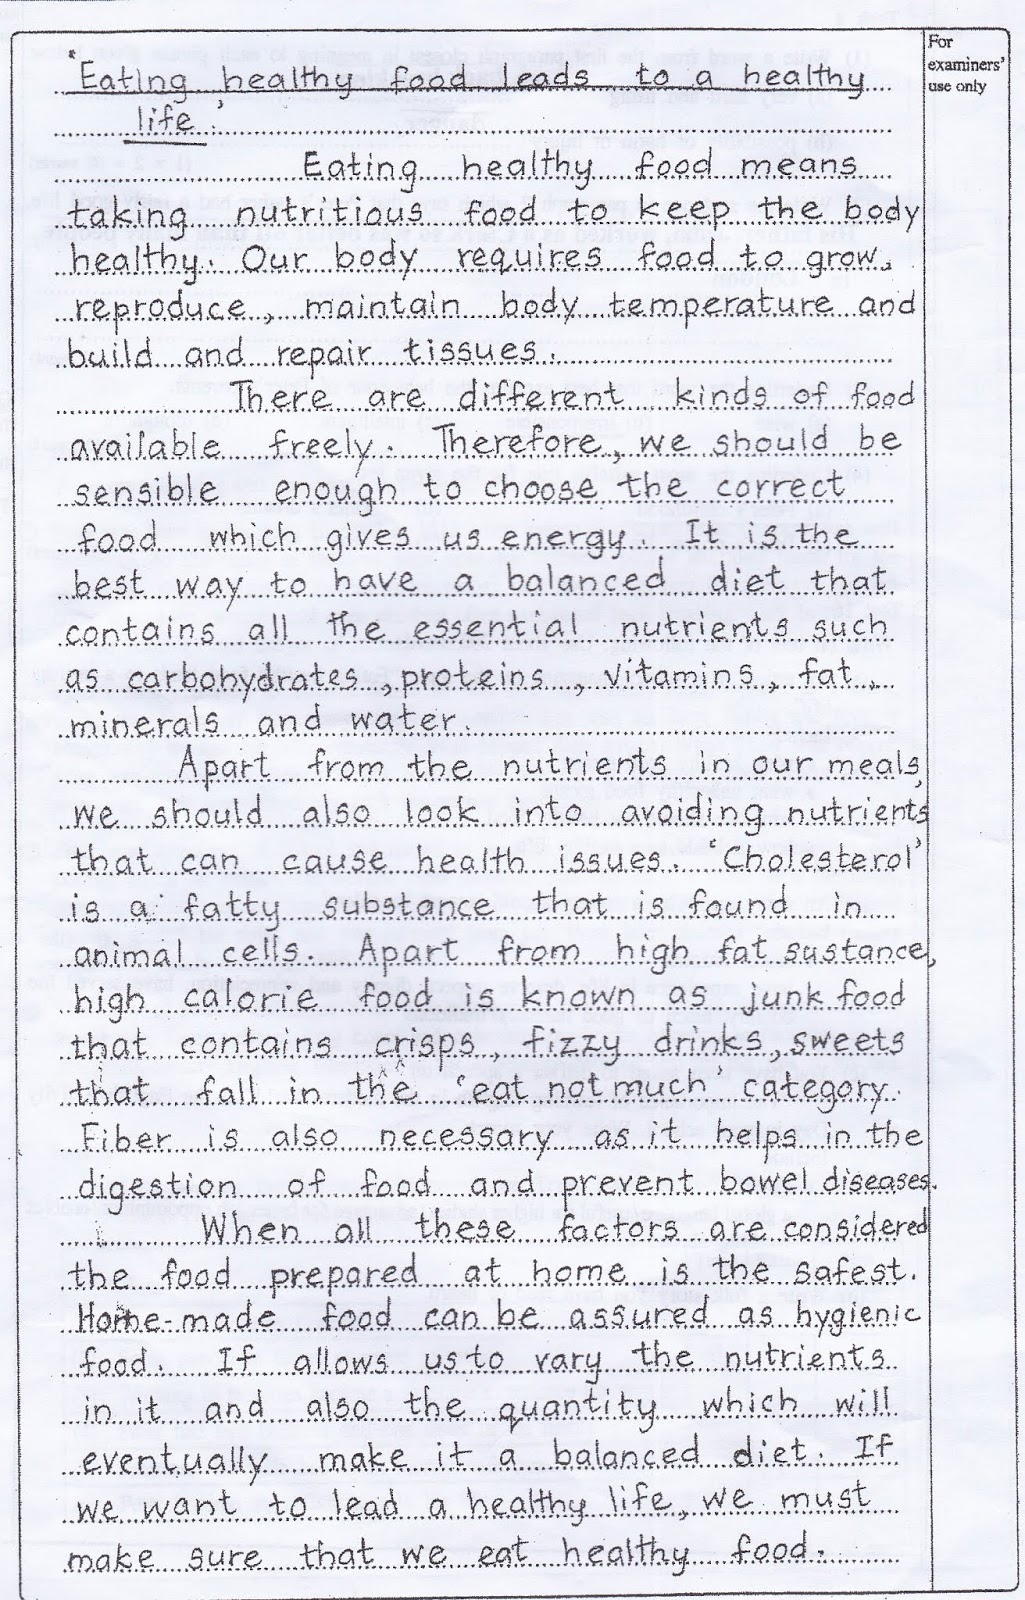 For
examiners'
use only
'Eating healthy food leads to a healthy
life'
Eating healthy food means
taking nutritious food to keep the body
healthy. Our body requires food to grow,
reproduce, maintain body temperature and
build and repair tissues.
There are different kinds of food
available freely. Therefore, we should be
sensible enough to choose the correct
food which gives us energy. It is the
best way to have a balanced diet that
contains all the essential nutrients such
as carbohydrates, proteins, vitamins, fat,
minerals and water.
Apart from the nutrients in our meals,
we should also look into avoiding nutrients
that can cause health issues. 'Cholesterol'
is a fatty substance that is found in
animal cells. Apart from high fat sustance,
high calorie food is known as junk food
that contains crisps, fizzy drinks, sweets
that fall in the 'eat not much' category.
Fiber is also necessary as it helps in the
digestion of food and prevent bowel diseases.
When all these factors are considered
the food prepared at home is the safest.
Home-made food can be assured as hygienic
food. If allows us to vary the nutrients
in it and also the quantity which will
eventually make it a balanced diet. If
we want to lead a healthy life, we must
make sure that we eat healthy food.